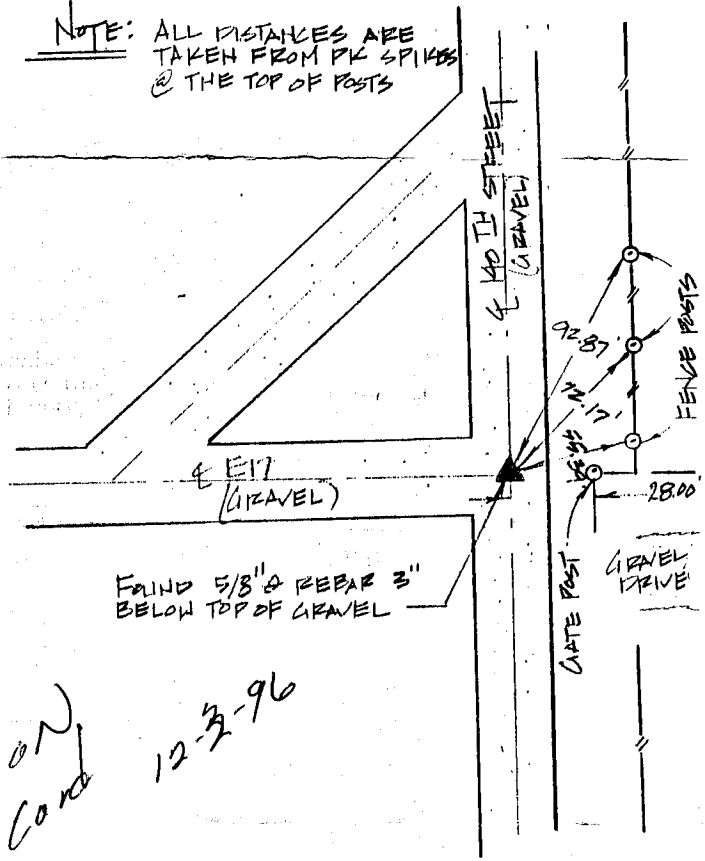 NOTE: ALL DISTANCES ARE
TAKEN FROM PK SPIKES
@ THE TOP OF POSTS
℄ 140TH STREET
(GRAVEL)
92.87'
72.17'
FENCE POSTS
℄ E17
(GRAVEL)
28.00'
GATE POST
GRAVEL
DRIVE
FOUND 5/8"Ø REBAR 3"
BELOW TOP OF GRAVEL
ON
Card
12-3-96